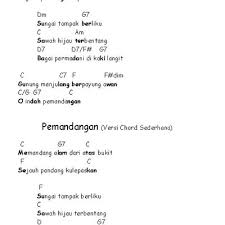 Dm G7
Sungai tampak berliku
C Am
Sawah hijau terbentang
D7 D7/F# G7
Bagai permadani di kaki langit
C C7 F F#dim
Gunung menjulang berpayung awan
C/G G7 C
O indah pemandangan
Pemandangan (Versi Chord Sederhana)
C G7 C
Memandang alam dari atas bukit
F C
Sejauh pandang kulepaskan
F
Sungai tampak berliku
C
Sawah hijau terbentang
D G7